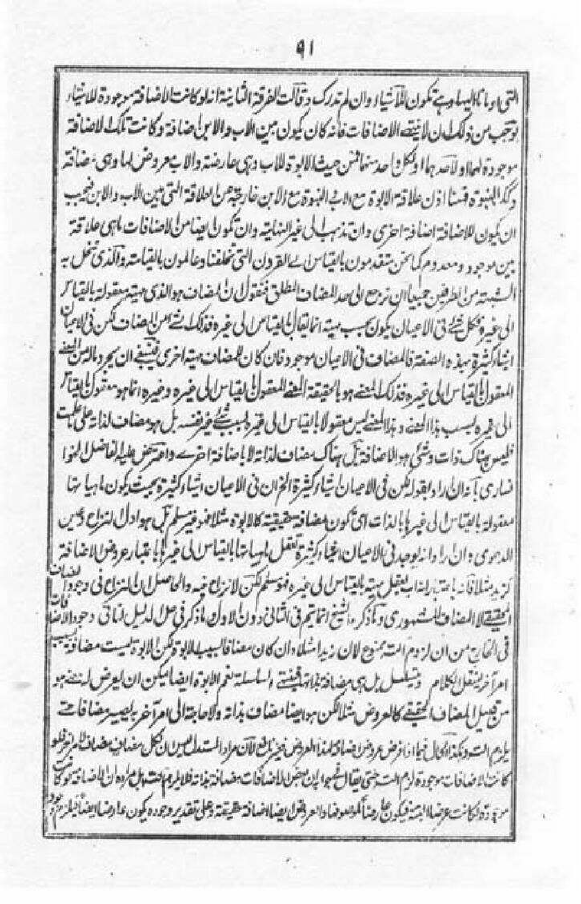 ٩١
تكون للأشياء وان لم تدرك وقالت الفرقة الثانية انه لو كانت الاضافة موجودة للاشياء
لوجب من ذلك ان لا يتناهى الاضافات فانه كان يكون بين الاب والابن اضافة وكانت تلك الاضافة
موجودة لهما او لاحدهما او لكل واحد منهما فمن حيث الابوة للاب وهي عارضة والاب معروض لها وهي مضافة
وكذا البنوة فهنا اذن علاقة الابوة مع الاب والبنوة مع الابن خارجة عن العلاقة التي بين الاب والابن فيجب
ان يكون للاضافة اضافة اخرى وان تذهب الى غير النهاية وان تكون ايضا من الاضافات ما هي علاقة
بين موجود ومعدوم كما نحن متقدمون بالقياس الى القرون التي تخلفنا وعالمون بالقيامة والذي تنحل به
الشبهة من الطرفين جميعا ان نرجع الى حد المضاف المطلق فنقول ان المضاف هو الذي مهيته مقولة بالقياس
الى غيره فكل شئ في الاعيان يكون بحيث مهيته انما يقال بالقياس الى غيره فذلك الشئ من المضاف لكن في الاعيان
اشياء كثيرة بهذه الصفة فالمضاف في الاعيان موجود فان كان للمضاف مهية اخرى فينبغي ان يجرد ما له من المعنى
المعقول بالقياس الى غيره فذلك المعنى هو بالحقيقة المعنى المعقول بالقياس الى غيره وغيره انما هو معقول بالقياس
الى غيره بسبب هذا المعنى وهذا المعنى ليس معقولا بالقياس الى غيره بسبب شئ غير نفسه بل هو مضاف لذاته على ما علمت
فليس هناك ذات وشئ هو الاضافة بل هناك مضاف لذاته لا باضافة اخرى واعترض عليه الفاضل الخوا
نساري بانه ان اراد بقوله لكن في الاعيان اشياء كثيرة الخ ان في الاعيان اشياء كثيرة بحيث يكون ماهياتها
معقولة بالقياس الى غيرها بالذات اي تكون مضافة حقيقية كالابوة مثلا فهو غير مسلم بل هو اول النزاع وعين
الدعوى وان اراد انه يوجد في الاعيان اشياء كثيرة تعقل ماهياتها بالقياس الى غيرها باعتبار عروض الاضافة
كزيد مثلا فانه باعتبار انه اب يعقل مهيته بالقياس الى غيره فهو مسلم لكن لا نزاع فيه والحاصل ان النزاع في وجود المضاف
الحقيقي لا المضاف المشهوري وما ذكره الشيخ انما يتم في الثاني دون الاول وما ذكر في حل الدليل النافي لوجود الاضافات
في الخارج من ان لزوم التسلسل ممنوع لان زيدا مثلا وان كان مضافا بسبب الابوة لكن الابوة ليست مضافة بسبب
امر آخر لينقل الكلام ويتسلسل بل هي مضافة بذاتها فينقطع السلسلة نعم الابوة ايضا يمكن ان يعرض لها معنى هو
من قبيل المضاف الحقيقي كالعروض مثلا لكن هو ايضا مضاف بذاته ولا حاجة الى امر آخر به يصير مضافا حتى
يلزم التسلسل
كانت الاضافات موجودة لزم التسلسل حتى يقال
موجودة لكانت عرضا البتة فيكون عارضا لموضوعها والعروض ايضا اضافة حقيقة وعلى تقدير وجوده يكون عارضا ايضا